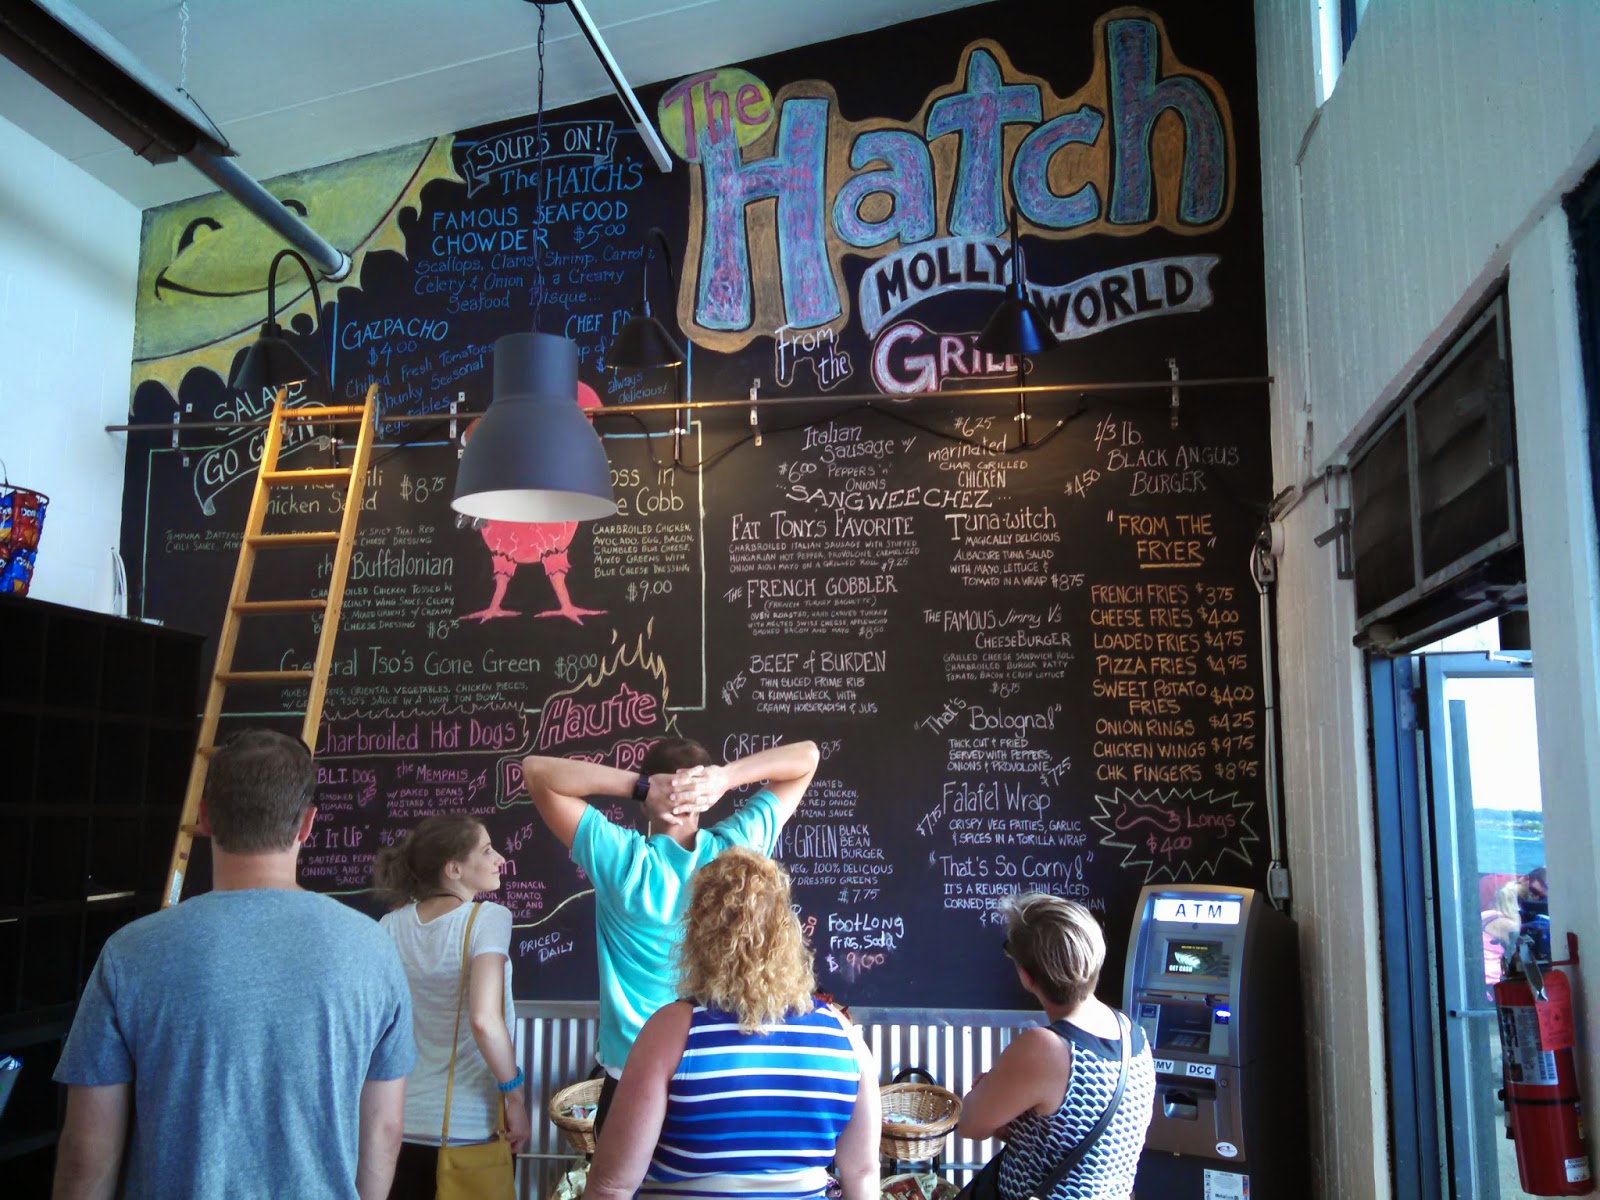 The
Hatch
MOLLY WORLD
From
the
GRILL
SOUPS ON!
The HATCH'S
FAMOUS SEAFOOD
CHOWDER $5.00
Scallops, Clams, Shrimp, Carrots,
Celery & Onion in a Creamy
Seafood Bisque...
GAZPACHO
$4.00
Chilled Fresh Tomatoes
Chunky Seasonal
CHEF
always
delicious!
SALADS
GO GREEN
Chicken Salad $8.75
TEMPURA BATTERED
SPICY THAI RED
CHILI SAUCE,
CHEESE DRESSING
the Buffalonian
CHARBROILED CHICKEN TOSSED IN
SPECIALTY WING SAUCE, CELERY
CREAMY
CHEESE DRESSING $8.75
Toss in
the Cobb
CHARBROILED CHICKEN,
AVOCADO, EGG, BACON,
CRUMBLED BLUE CHEESE,
MIXED GREENS WITH
BLUE CHEESE DRESSING
$9.00
General Tso's Gone Green $8.00
MIXED ORIENTAL VEGETABLES, CHICKEN PIECES,
W/ GENERAL TSO'S SAUCE IN A WON TON BOWL
Haute
Charbroiled Hot Dogs
B.L.T. DOG
SMOKED
TOMATO
MAYO
6.25
the MEMPHIS 5.75
W/ BAKED BEANS
MUSTARD & SPICY
JACK DANIELS BBQ SAUCE
IT UP" $6.00
SAUTEED PEPPERS
ONIONS AND
SAUCE
$6.25
SPINACH
ONION, TOMATO,
AND
SAUCE
PRICED
DAILY
Italian
Sausage w/
$6.00 PEPPERS 'n'
ONIONS
$6.25
marinated
CHAR GRILLED
CHICKEN
1/3 lb.
BLACK ANGUS
$4.50 BURGER
...SANGWEECHEZ...
FAT TONYS FAVORITE
CHARBROILED ITALIAN SAUSAGE WITH STUFFED
HUNGARIAN HOT PEPPER, PROVOLONE, CARMELIZED
ONION AIOLI MAYO ON A GRILLED ROLL $9.25
THE FRENCH GOBBLER
(FRENCH TURKEY BAGUETTE)
OVEN ROASTED, HAND CARVED TURKEY
WITH MELTED SWISS CHEESE, APPLEWOOD
SMOKED BACON AND MAYO $8.50
BEEF of BURDEN
$9.25 THIN SLICED PRIME RIB
ON KUMMELWECK, WITH
CREAMY HORSERADISH & JUS
GREEK 8.75
MARINATED
CHICKEN,
RED ONION
TAZAKI SAUCE
& GREEN BLACK
BEAN
BURGER
VEG, 100% DELICIOUS
W/ DRESSED GREENS
$7.75
FOOTLONG
FRIES, SODA
$9.00
TUNA-WITCH
MAGICALLY DELICIOUS
ALBACORE TUNA SALAD
WITH MAYO, LETTUCE &
TOMATO IN A WRAP $8.75
THE FAMOUS Jimmy V's
CHEESEBURGER
GRILLED CHEESE SANDWICH ROLL
CHARBROILED BURGER PATTY
TOMATO, BACON & CRISP LETTUCE
$8.75
"That's Bologna!"
THICK CUT & FRIED
SERVED WITH PEPPERS,
ONIONS & PROVOLONE
$7.25
Falafel Wrap
$7.75 CRISPY VEG PATTIES, GARLIC
& SPICES IN A TORILLA WRAP
"That's So Corny!"
IT'S A REUBEN! THIN SLICED
CORNED BEEF
"FROM THE
FRYER"
FRENCH FRIES $3.75
CHEESE FRIES $4.00
LOADED FRIES $4.75
PIZZA FRIES $4.95
SWEET POTATO
FRIES $4.00
ONION RINGS $4.25
CHICKEN WINGS $9.75
CHK FINGERS $8.95
Longs
$4.00
ATM
GET CASH
EMV DCC